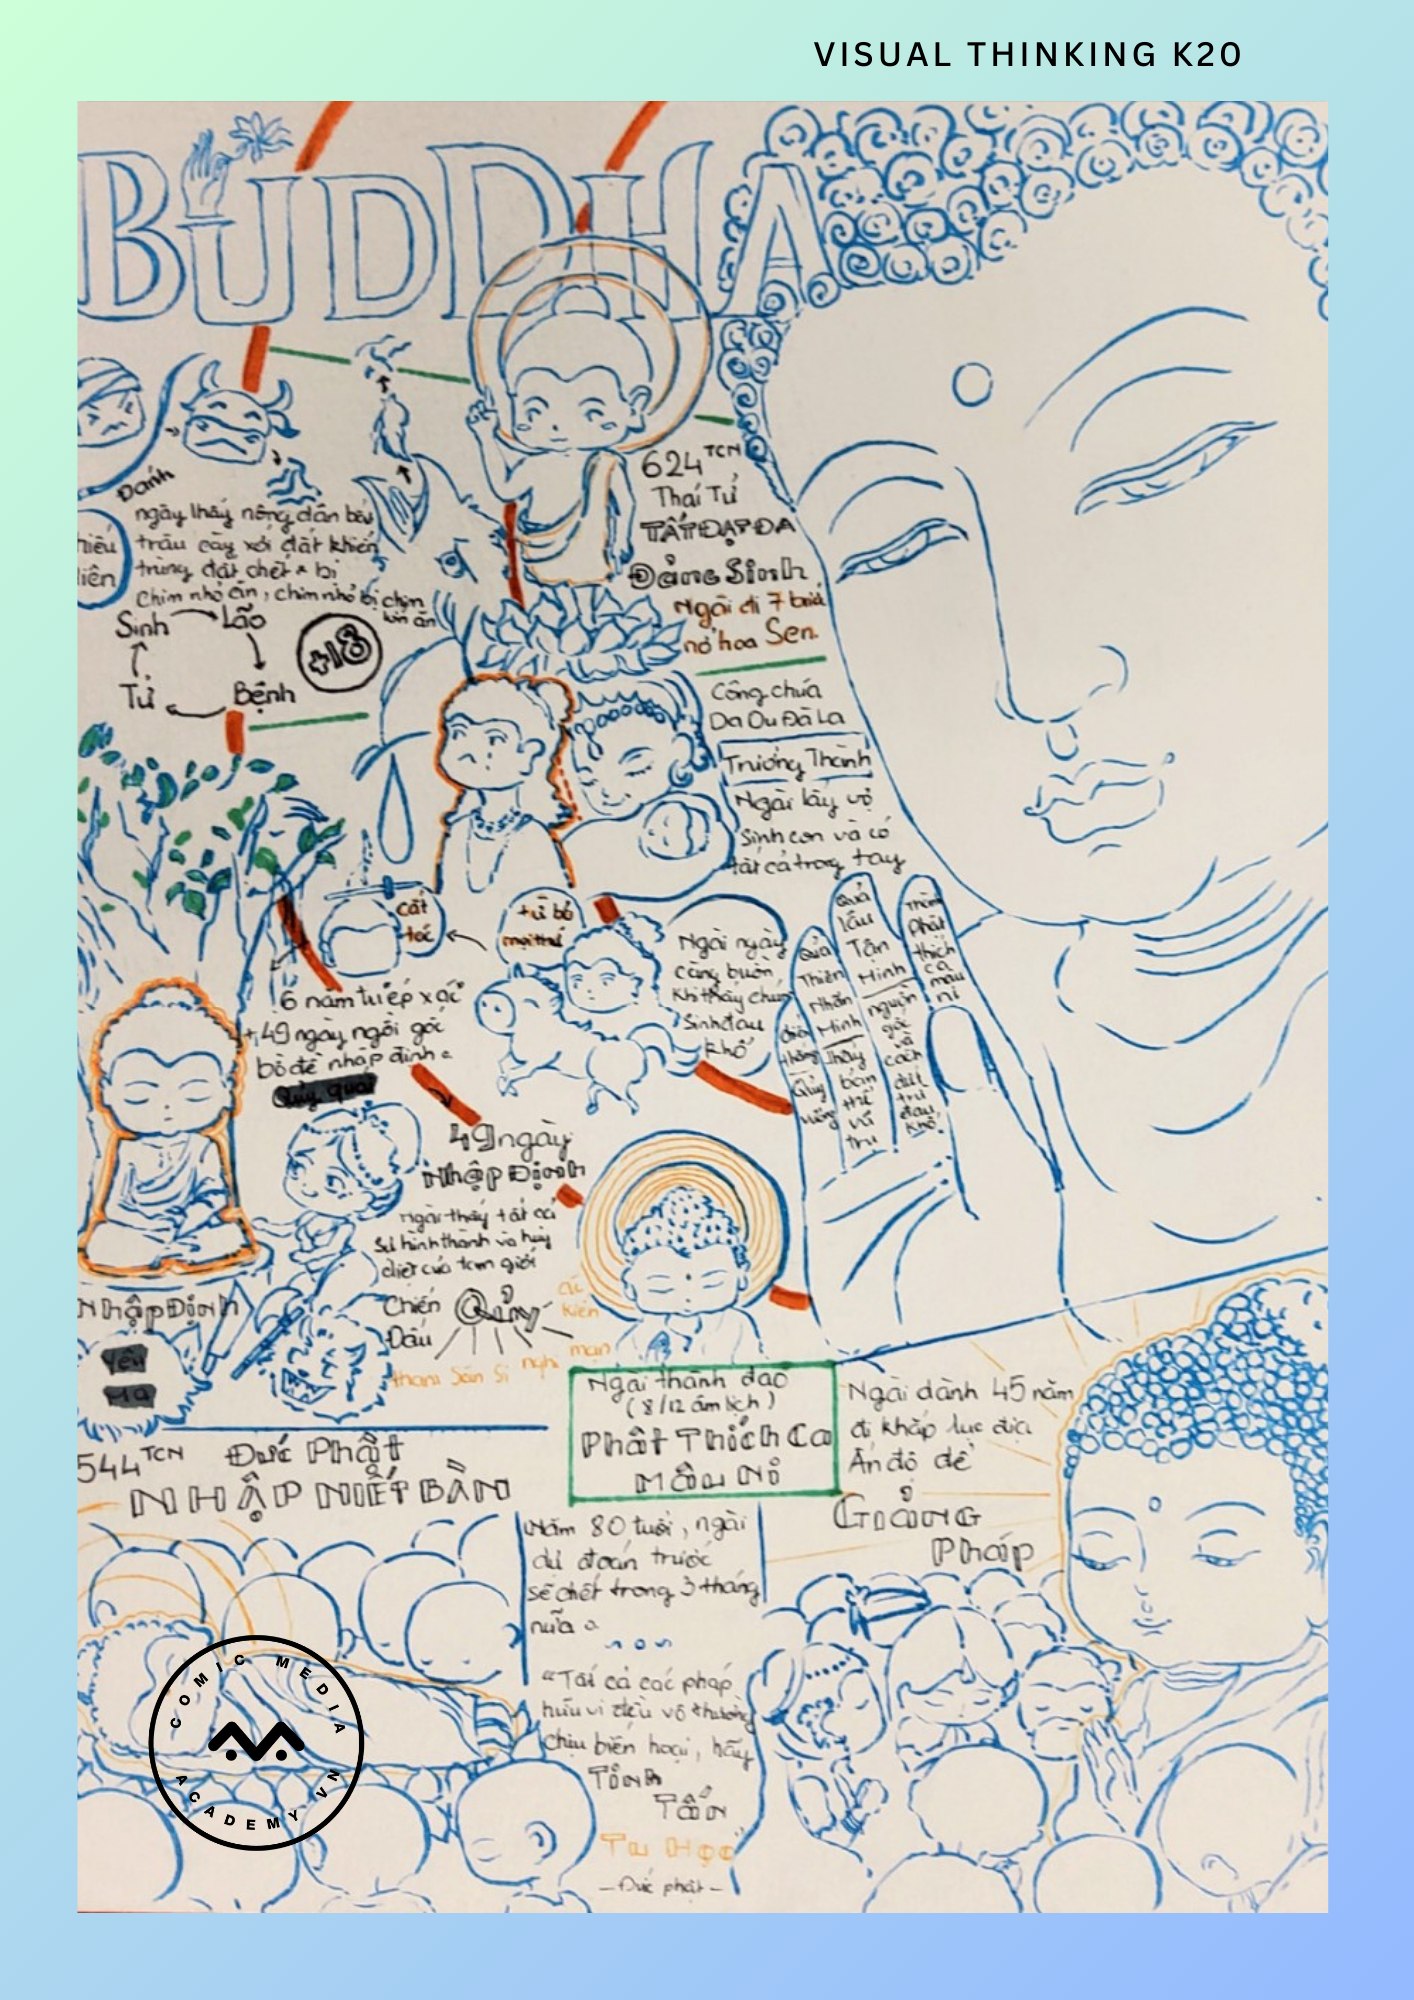 VISUAL THINKING K20
BUDDHA
624 TCN
Thái Tử
TẤT ĐẠT ĐA
Đảng Sinh
Ngài đi 7 bước
nở hoa Sen.
Đánh
ngày thấy nông dân bắt
trâu cày xới đất khiến
trùng đất chết & bị
chim nhỏ ăn, chim nhỏ bị chim
lớn ăn
Sinh
Lão
Bệnh
Tử
+18
Công chúa
Da Du Đà La
Trưởng Thành
Ngài lấy vợ
Sinh con và có
tất cả trong tay
cắt
tóc
từ bỏ
mọi thứ
Ngài ngày
càng buồn,
khi thấy chúng
Sinh đau
khổ
Quả
Thiên
Nhãn
Minh
thấy
bản
thể
vũ
trụ
Quả
lầu
Tận
Minh
nguồn
gốc
và
cách
diệt
trừ
đau
khổ.
Thành
Phật
thích
ca
mâu
ni
6 năm tu ép xác
+ 49 ngày ngồi gốc
bồ đề nhập định
Qủy quái
49 ngày
Nhập Định
Ngài thấy tất cả
Sự hình thành và hủy
diệt của tam giới
Chiến
Đấu
Qủy
tham Sân Si nghi mạn
kiến
Nhập Định
Yêu
Ma
Ngài thành đạo
(8/12 âm lịch)
Phật Thích Ca
Mâu Ni
Ngài dành 45 năm
đi khắp lục địa
Ấn độ để
Giảng
Pháp
544 TCN Đức Phật
NHẬP NIẾT BÀN
Năm 80 tuổi, ngài
dự đoán trước
sẽ chết trong 3 tháng
nữa
“Tất cả các pháp
hữu vi đều vô thường
chịu biến hoại, hãy
Tinh
Tấn
Tu Học”
- Đức phật -
COMIC MEDIA
ACADEMY VN